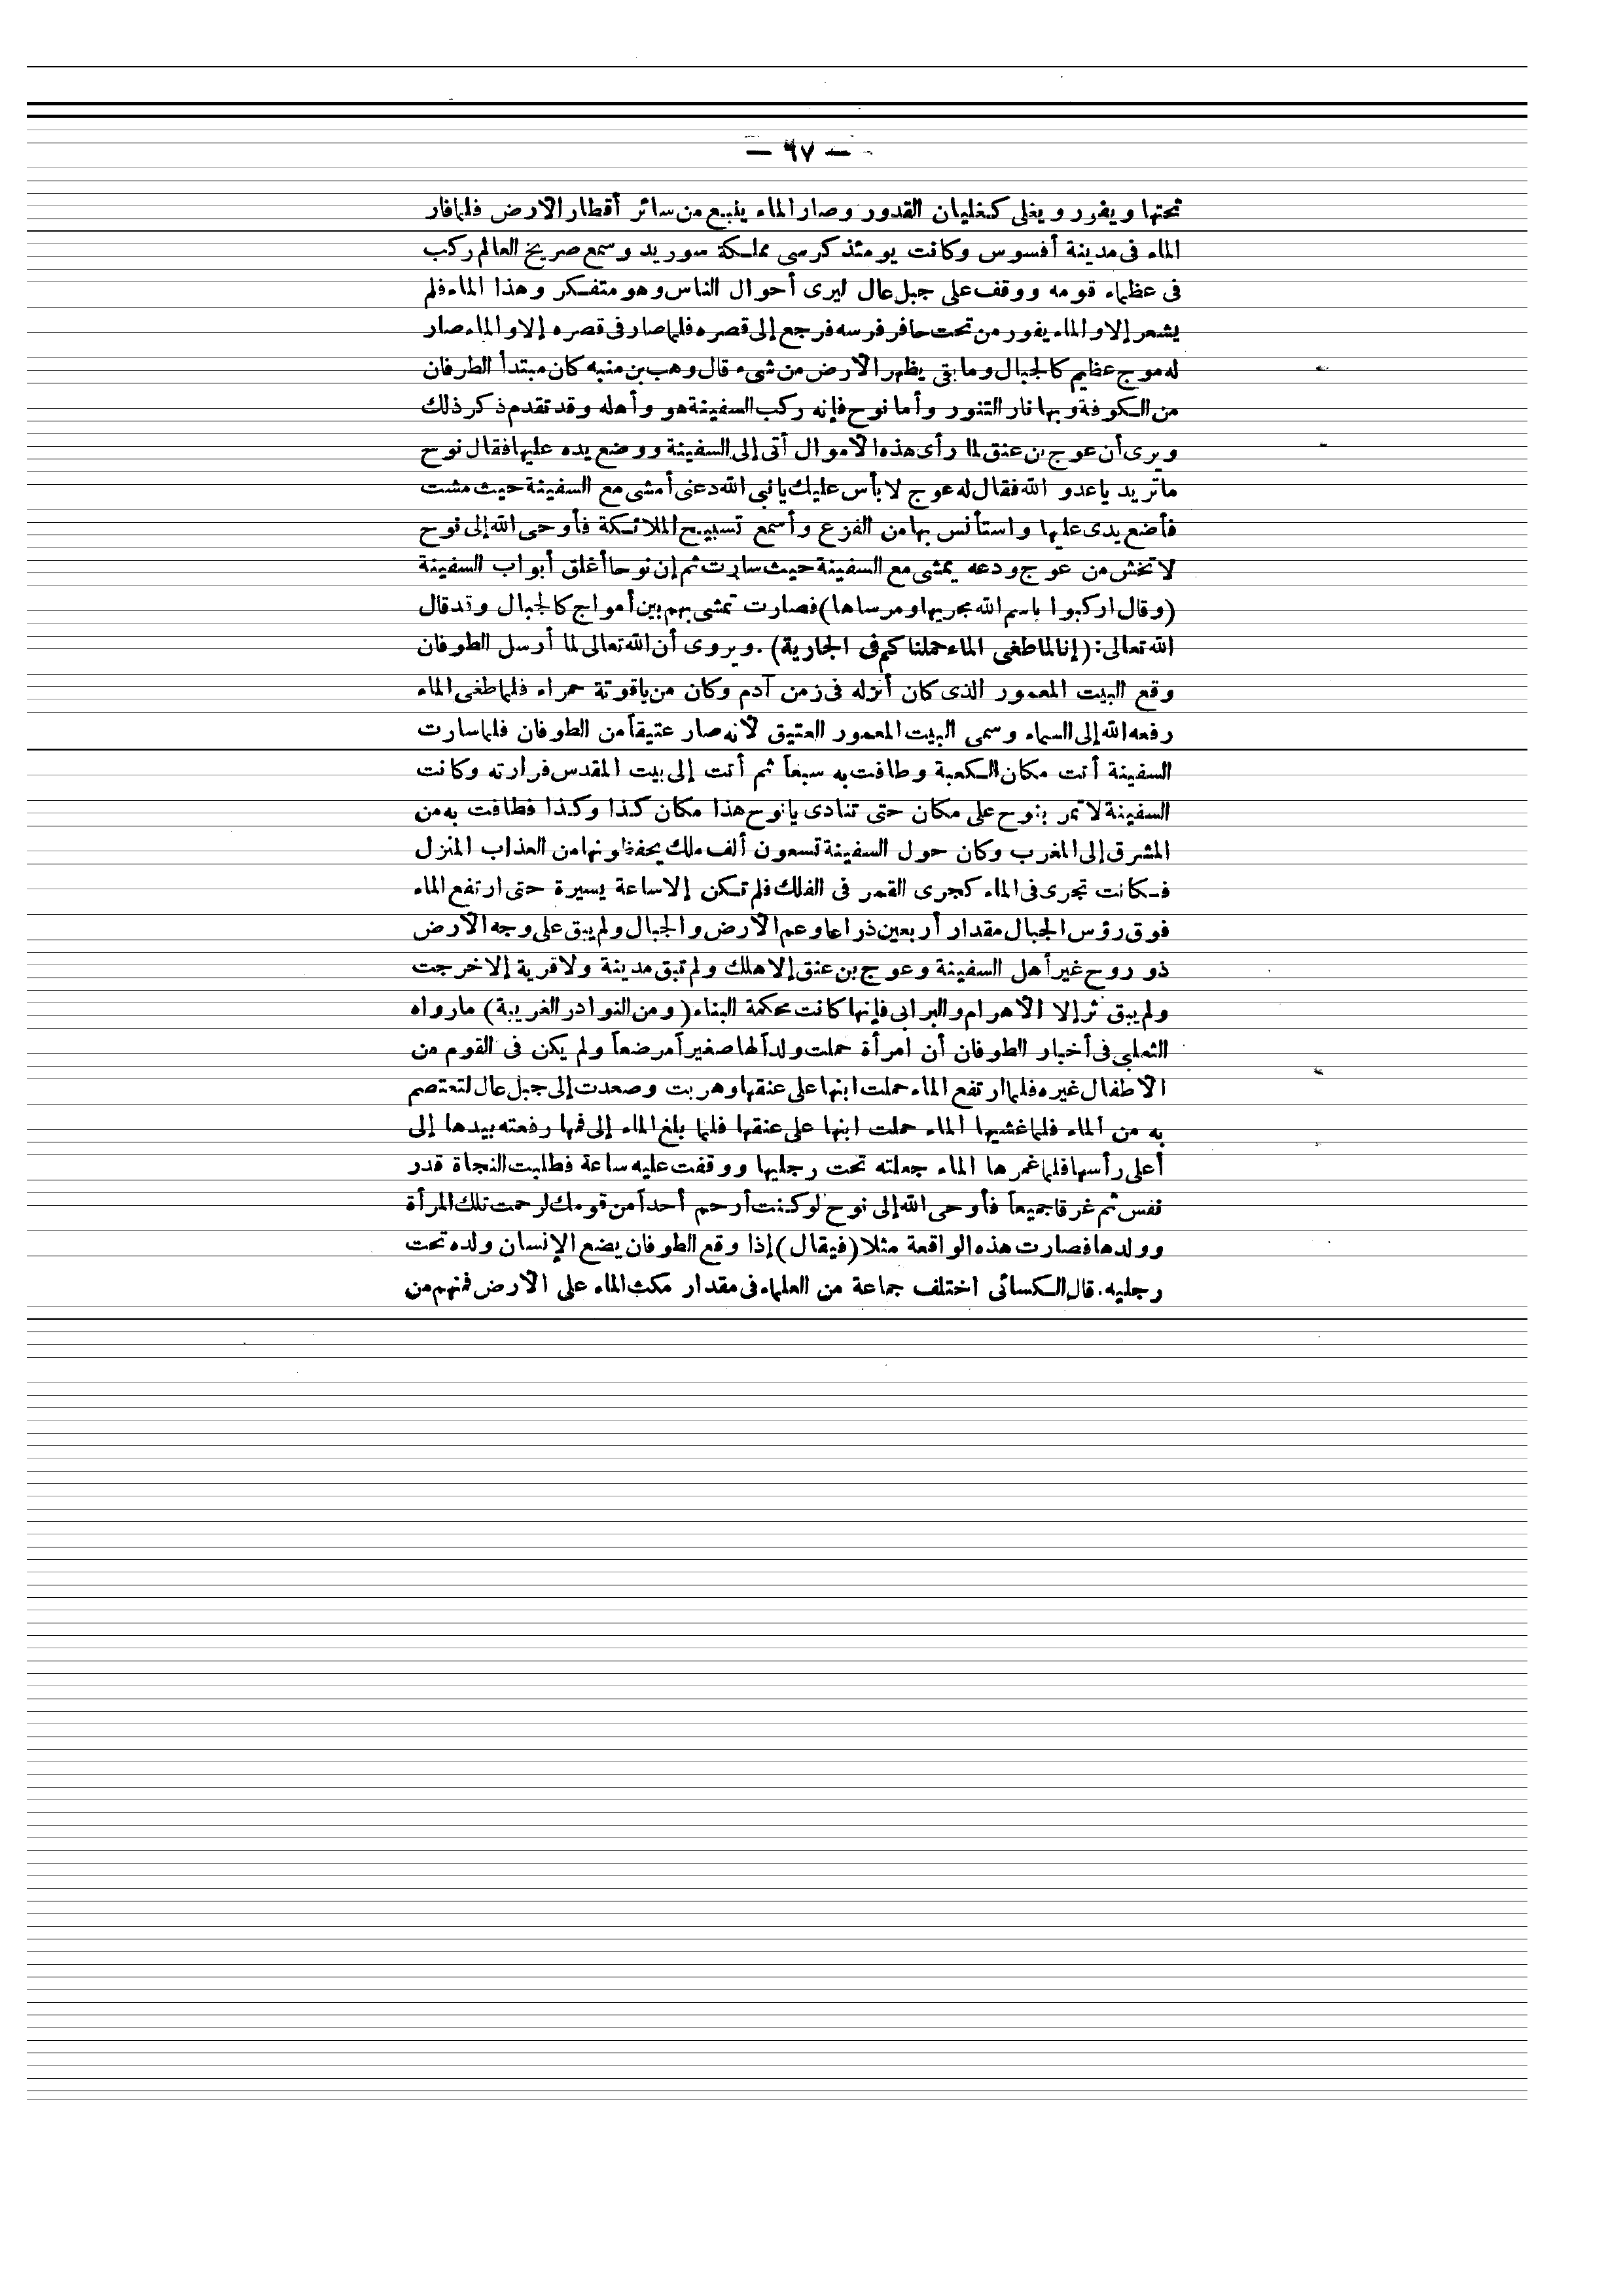 — ٦٧ —
تحتها ويفور ويغلى كغليان القدور وصار الماء ينبع من سائر أقطار الأرض فلما فار
الماء فى مدينة أفسوس وكانت يومئذ كرسى مملكة سوريد وسمع صريخ العالم ركب
فى عظماء قومه ووقف على جبل عال ليرى أحوال الناس وهو متفكر وهذا الماء فلم
يشعر إلا والماء يفور من تحت حافر فرسه فرجع إلى قصره فلما صار فى قصره إلا والماء صار
له موج عظيم كالجبال وما بقى يظهر الأرض من شىء قال وهب بن منبه كان مبتدأ الطرفان
من الكوفة وبها نار التنور وأما نوح فإنه ركب السفينة هو وأهله وقد تقدم ذكر ذلك
ويرى أن عوج بن عنق لما رأى هذه الأموال أتى إلى السفينة ووضع يده عليها فقال نوح
ما تريد يا عدو الله فقال له عوج لا بأس عليك يا نبى الله دعنى أمشى مع السفينة حيث مشت
فأضع يدى عليها واستأنس بها من الفزع وأسمع تسبيح الملائكة فأوحى الله إلى نوح
لا تخش من عوج ودعه يمشى مع السفينة حيث سارت ثم إن نوحا أغلق أبواب السفينة
(وقال اركبوا باسم الله مجريها ومرساها) فصارت تمشى بهم بين أمواج كالجبال وقد قال
الله تعالى: (إنا لما طغى الماء حملناكم فى الجارية). ويروى أن الله تعالى لما أرسل الطوفان
وقع البيت المعمور الذى كان أنزله فى زمن آدم وكان من ياقوتة حمراء فلما طغى الماء
رفعه الله إلى السماء وسمى البيت المعمور العتيق لأنه صار عتيقاً من الطوفان فلما سارت
السفينة أتت مكان الكعبة وطافت به سبعاً ثم أتت إلى بيت المقدس فزارته وكانت
السفينة لا تمر بنوح على مكان حتى تنادى يا نوح هذا مكان كذا وكذا فطافت به من
المشرق إلى المغرب وكان حول السفينة تسعون ألف ملك يحفظونها من العذاب المنزل
فكانت تجرى فى الماء كجرى القمر فى الفلك فلم تكن إلا ساعة يسيرة حتى ارتفع الماء
فوق رؤس الجبال مقدار أربعين ذراعا وعم الأرض والجبال ولم يبق على وجه الأرض
ذو روح غير أهل السفينة وعوج بن عنق إلا هلك ولم تبق مدينة ولا قرية إلا خرجت
ولم يبق ثر إلا الأهرام والبرابى فإنها كانت محكمة البناء (ومن النوادر الغريبة) ما رواه
الثعلبى فى أخبار الطوفان أن امرأة حملت ولداً لها صغيراً مرضعاً ولم يكن فى القوم من
الأطفال غيره فلما ارتفع الماء حملت ابنها على عنقها وهربت وصعدت إلى جبل عال لتعتصم
به من الماء فلما غشيها الماء حملت ابنها على عنقها فلما بلغ الماء إلى فمها رفعته بيدها إلى
أعلى رأسها فلما غمرها الماء جعلته تحت رجليها ووقفت عليه ساعة فطلبت النجاة قدر
نفس ثم غرقا جميعاً فأوحى الله إلى نوح لو كنت أرحم أحداً من قومك لرحمت تلك المرأة
وولدها فصارت هذه الواقعة مثلا (فيقال) إذا وقع الطوفان يضع الإنسان ولده تحت
رجليه. قال الكسائى اختلف جماعة من العلماء فى مقدار مكث الماء على الأرض فمنهم من